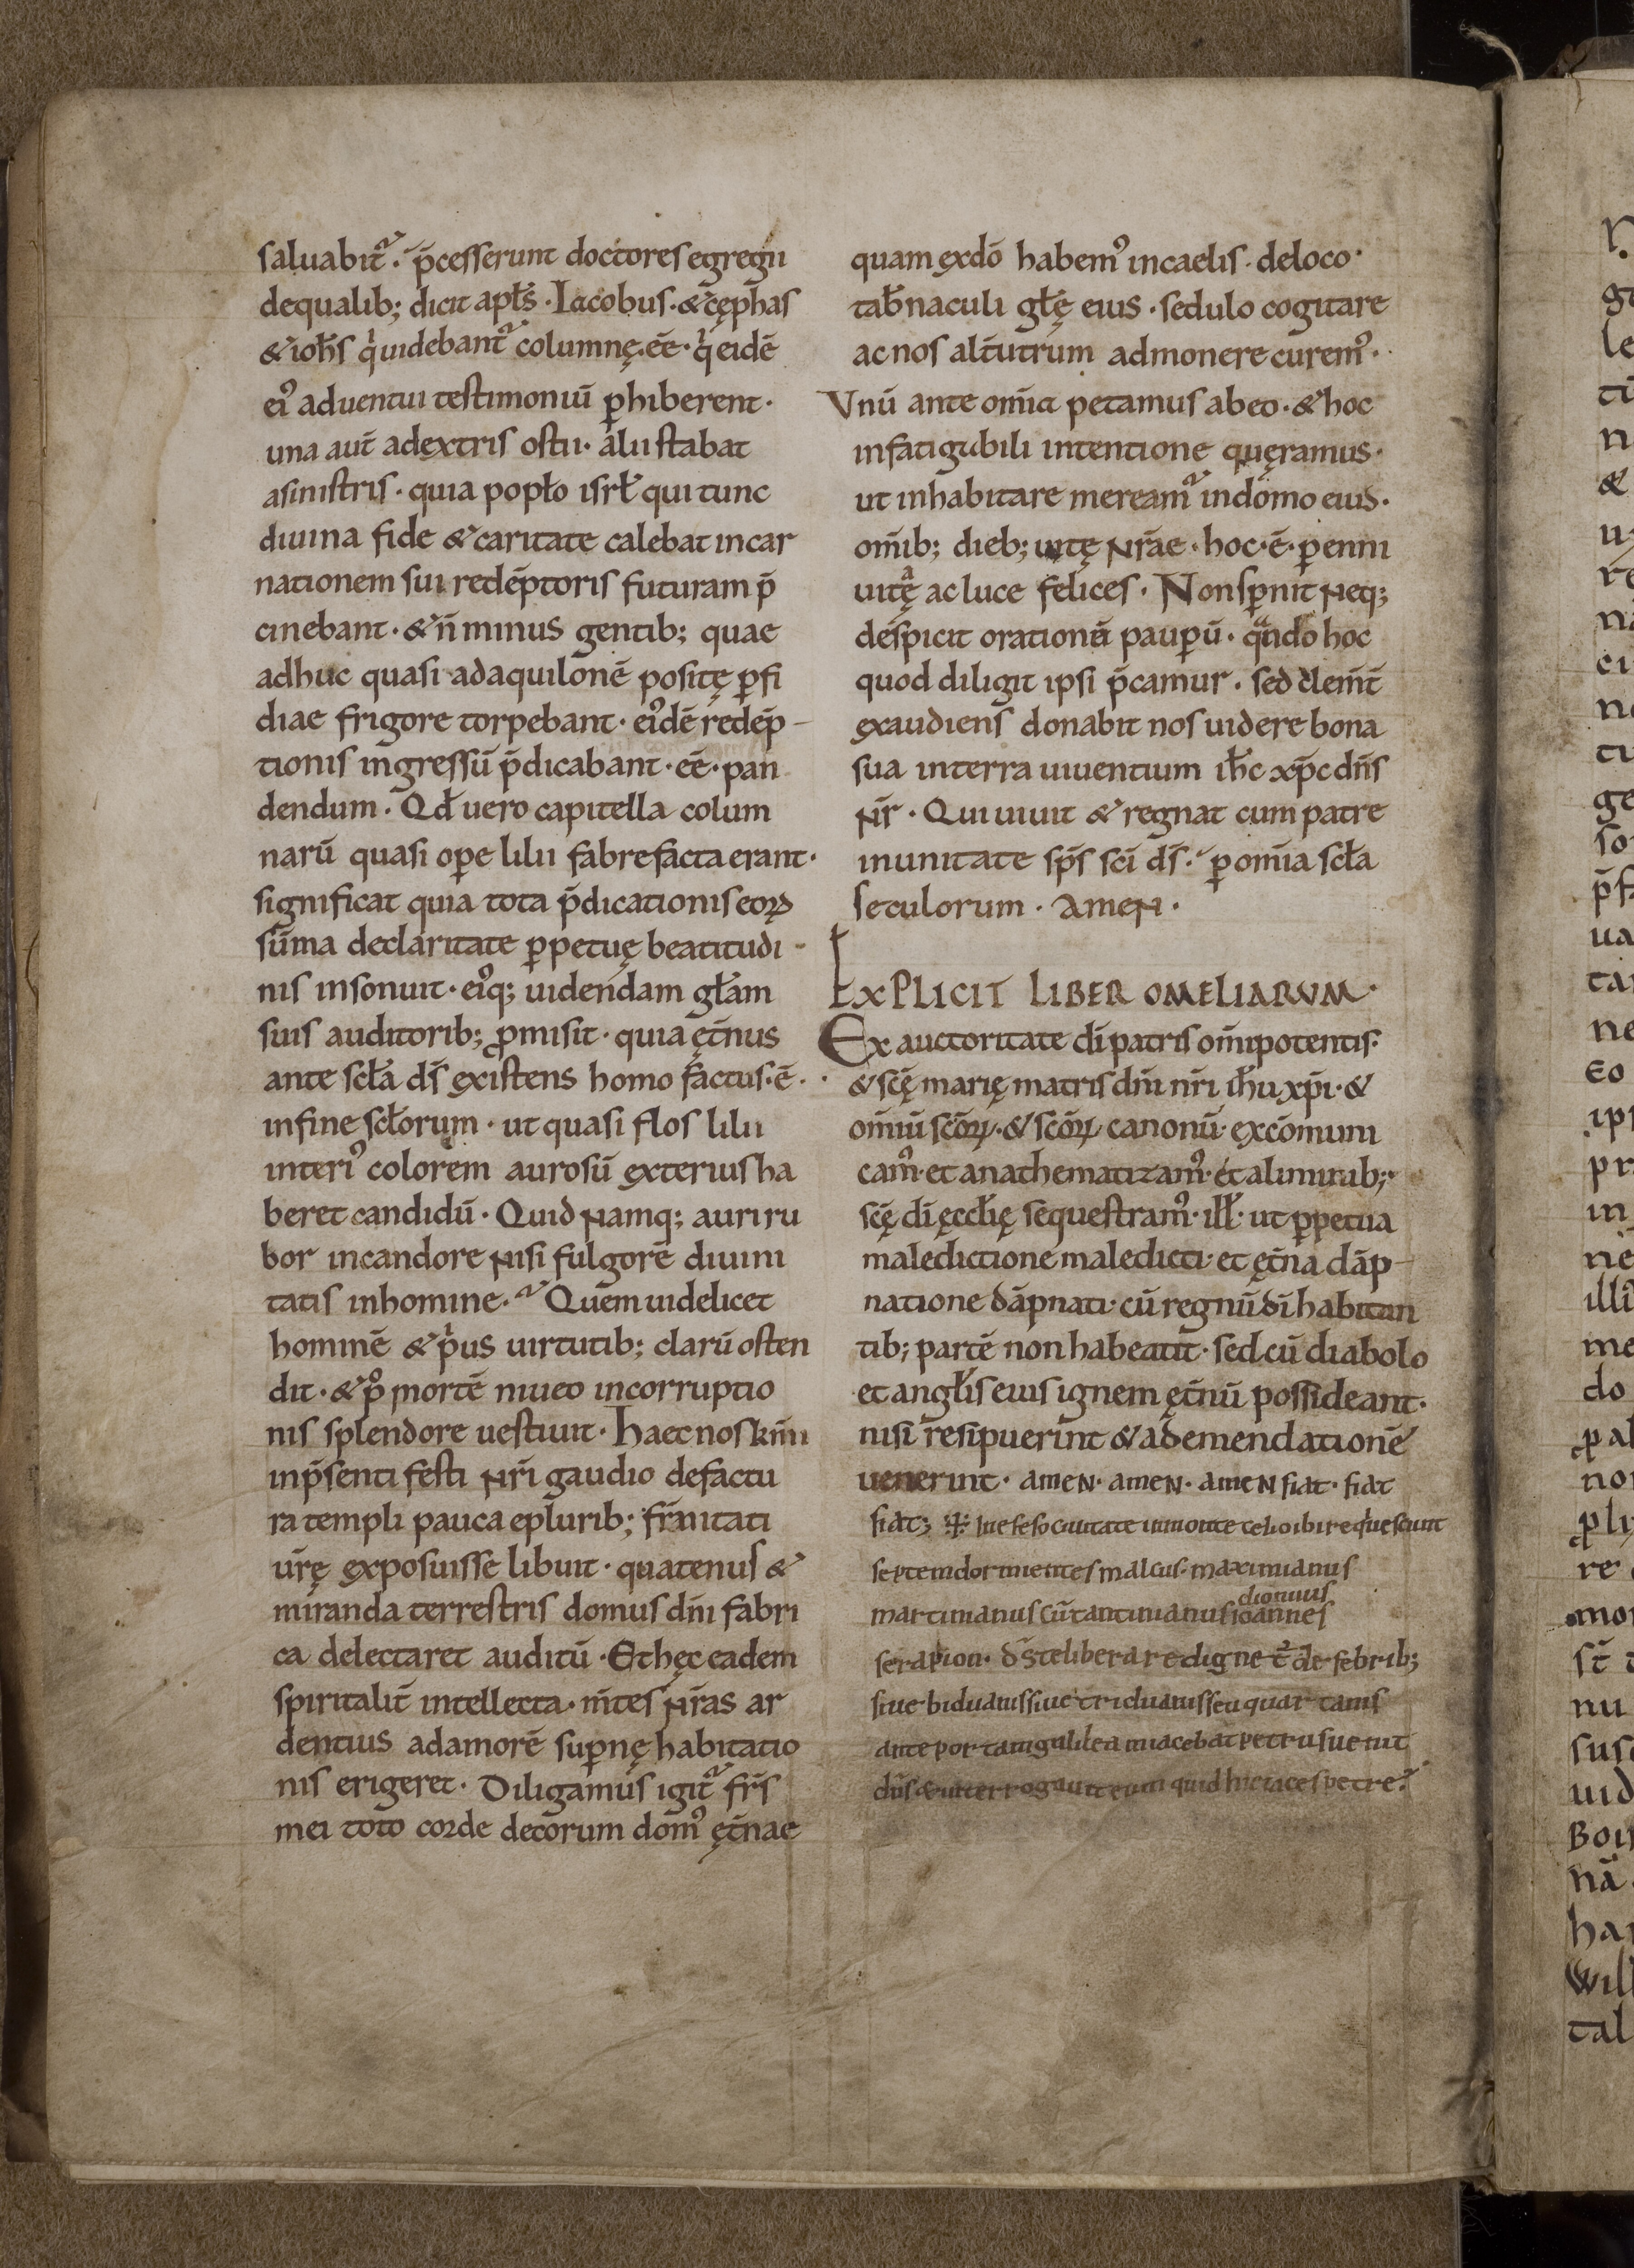 saluabit᷑. p̄cesserunt doctores egregii
dequalib; dicit apƚs. Iacobus. & cęphas
& ioħs qͥ uidebant᷑ columnę. eē. qͥ eidē
ei᾽ aduentui testimoniū ꝑhiberent.
una aut̄ adextris ostii. alii stabat
asinistris. quia popƚo isrƚ qui tunc
diuina fide & caritate calebat incar
nationem sui redēptoris futuram p̄
cinebant. & n̄ minus gentib; quae
adhuc quasi adaquilonē positę ꝑfi
diae frigore torpebant. ei᾽dē redēp-
tionis ingressū p̄dicabant. eē. pan
dendum. Qđ uero capitella colum
narū quasi oꝑe lilii fabrefacta erant.
significat quia tota p̄dicationis eoꝝ
sūma declaritate ꝑpetuę beatitudi-
nis insonuit. ei᾽q; uidendam gƚam
suis auditorib; ꝓmisit. quia ęt̄nus
ante scƚa dš existens homo factus. ē.
infine scƚorum. ut quasi flos lilii
interi᾽ colorem aurosū exterius ha
beret candidū. Quid namq; auri ru
bor incandore nisi fulgorē diuini
tatis inhomine. Quem uidelicet
hominē & pͥus uirtutib; clarū osten
dit. & pͦ mortē niueo incorruptio
nis splendore uestiuit. Haec nos km̄i
inp̄senti festi nr̄i gaudio defactu
ra templi pauca epluribꝫ; fr̄nitati
ur̄ę exposuisse libuit. quatenus &
miranda terrestris domus dn̄i fabri
ca delectaret auditū. Et hęc eadem
spiritalit̄ intellecta. m̄tes nr̄as ar
dentius adamorē suꝑnę habitatio
nis erigeret. Diligamus igit᷑ fr̄s
mei toto corde decorum dom᾽ ęt̄nae
quam exdō habem᾽ incaelis. deloco.
tab̄naculi gƚę eius. sedulo cogitare
ac nos alt̄utrum admonere curem᾽.
Vnū ante om̄ia petamus abeo. & hoc
infatigabili intentione quęramus.
ut inhabitare meream᷑ indomo eius.
om̄ib; dieb; uitę nr̄ae. hoc. ē. ꝑenni
uitę ac luce felices. Non sꝑnit neq;
despicit orationē pauꝑū. qͣndo hoc
quod diligit ipsi p̄camur. sed clem̄t̄
exaudiens donabit nos uidere bona
sua interra uiuentium iħc xp̄c dn̄s
nr̄. Qui uiuit & regnat cum patre
inunitate sp̄s sc̄i dš. ꝑ om̄ia scƚa
seculorum. Amen.
Explicit liber omeliarum.
Ex auctoritate dī patris om̄ipotentis.
& sc̄ę marię matris dn̄i nr̄i iħu xp̄i. &
om̄iū sc̄oꝝ. & sc̄oꝝ canonū. excōmuni
cam᾽. et anathematizam᾽. et aliminib;
sc̄ę dī ęccƚię sequestram᾽. ill̄. ut ꝑpetua
maledictione maledicti. et ęt̄na dāp-
natione dāpnati. cū regnū dī habitan
tib; partē non habeant. sed cū diabolo
et angƚis eius ignem ęt̄nū possideant.
nisi resipuerint & ademendationē
uenerint. amen. amen. amen fiat. fiat
fiat; ✠ In efeso ciuitate inmonte celio ibi requiescunt
septem dormientes malcus. maximianus
martinianus cūstantinianus ioannes
dionuius
serapion. dš te liberare digne t᷑ de febrib;
siue biduanis siue triduanis seu quartanis
ante portam galilea iacebat petrus uenit
dn̄s & interrogauit eum quid hic iaces petre?